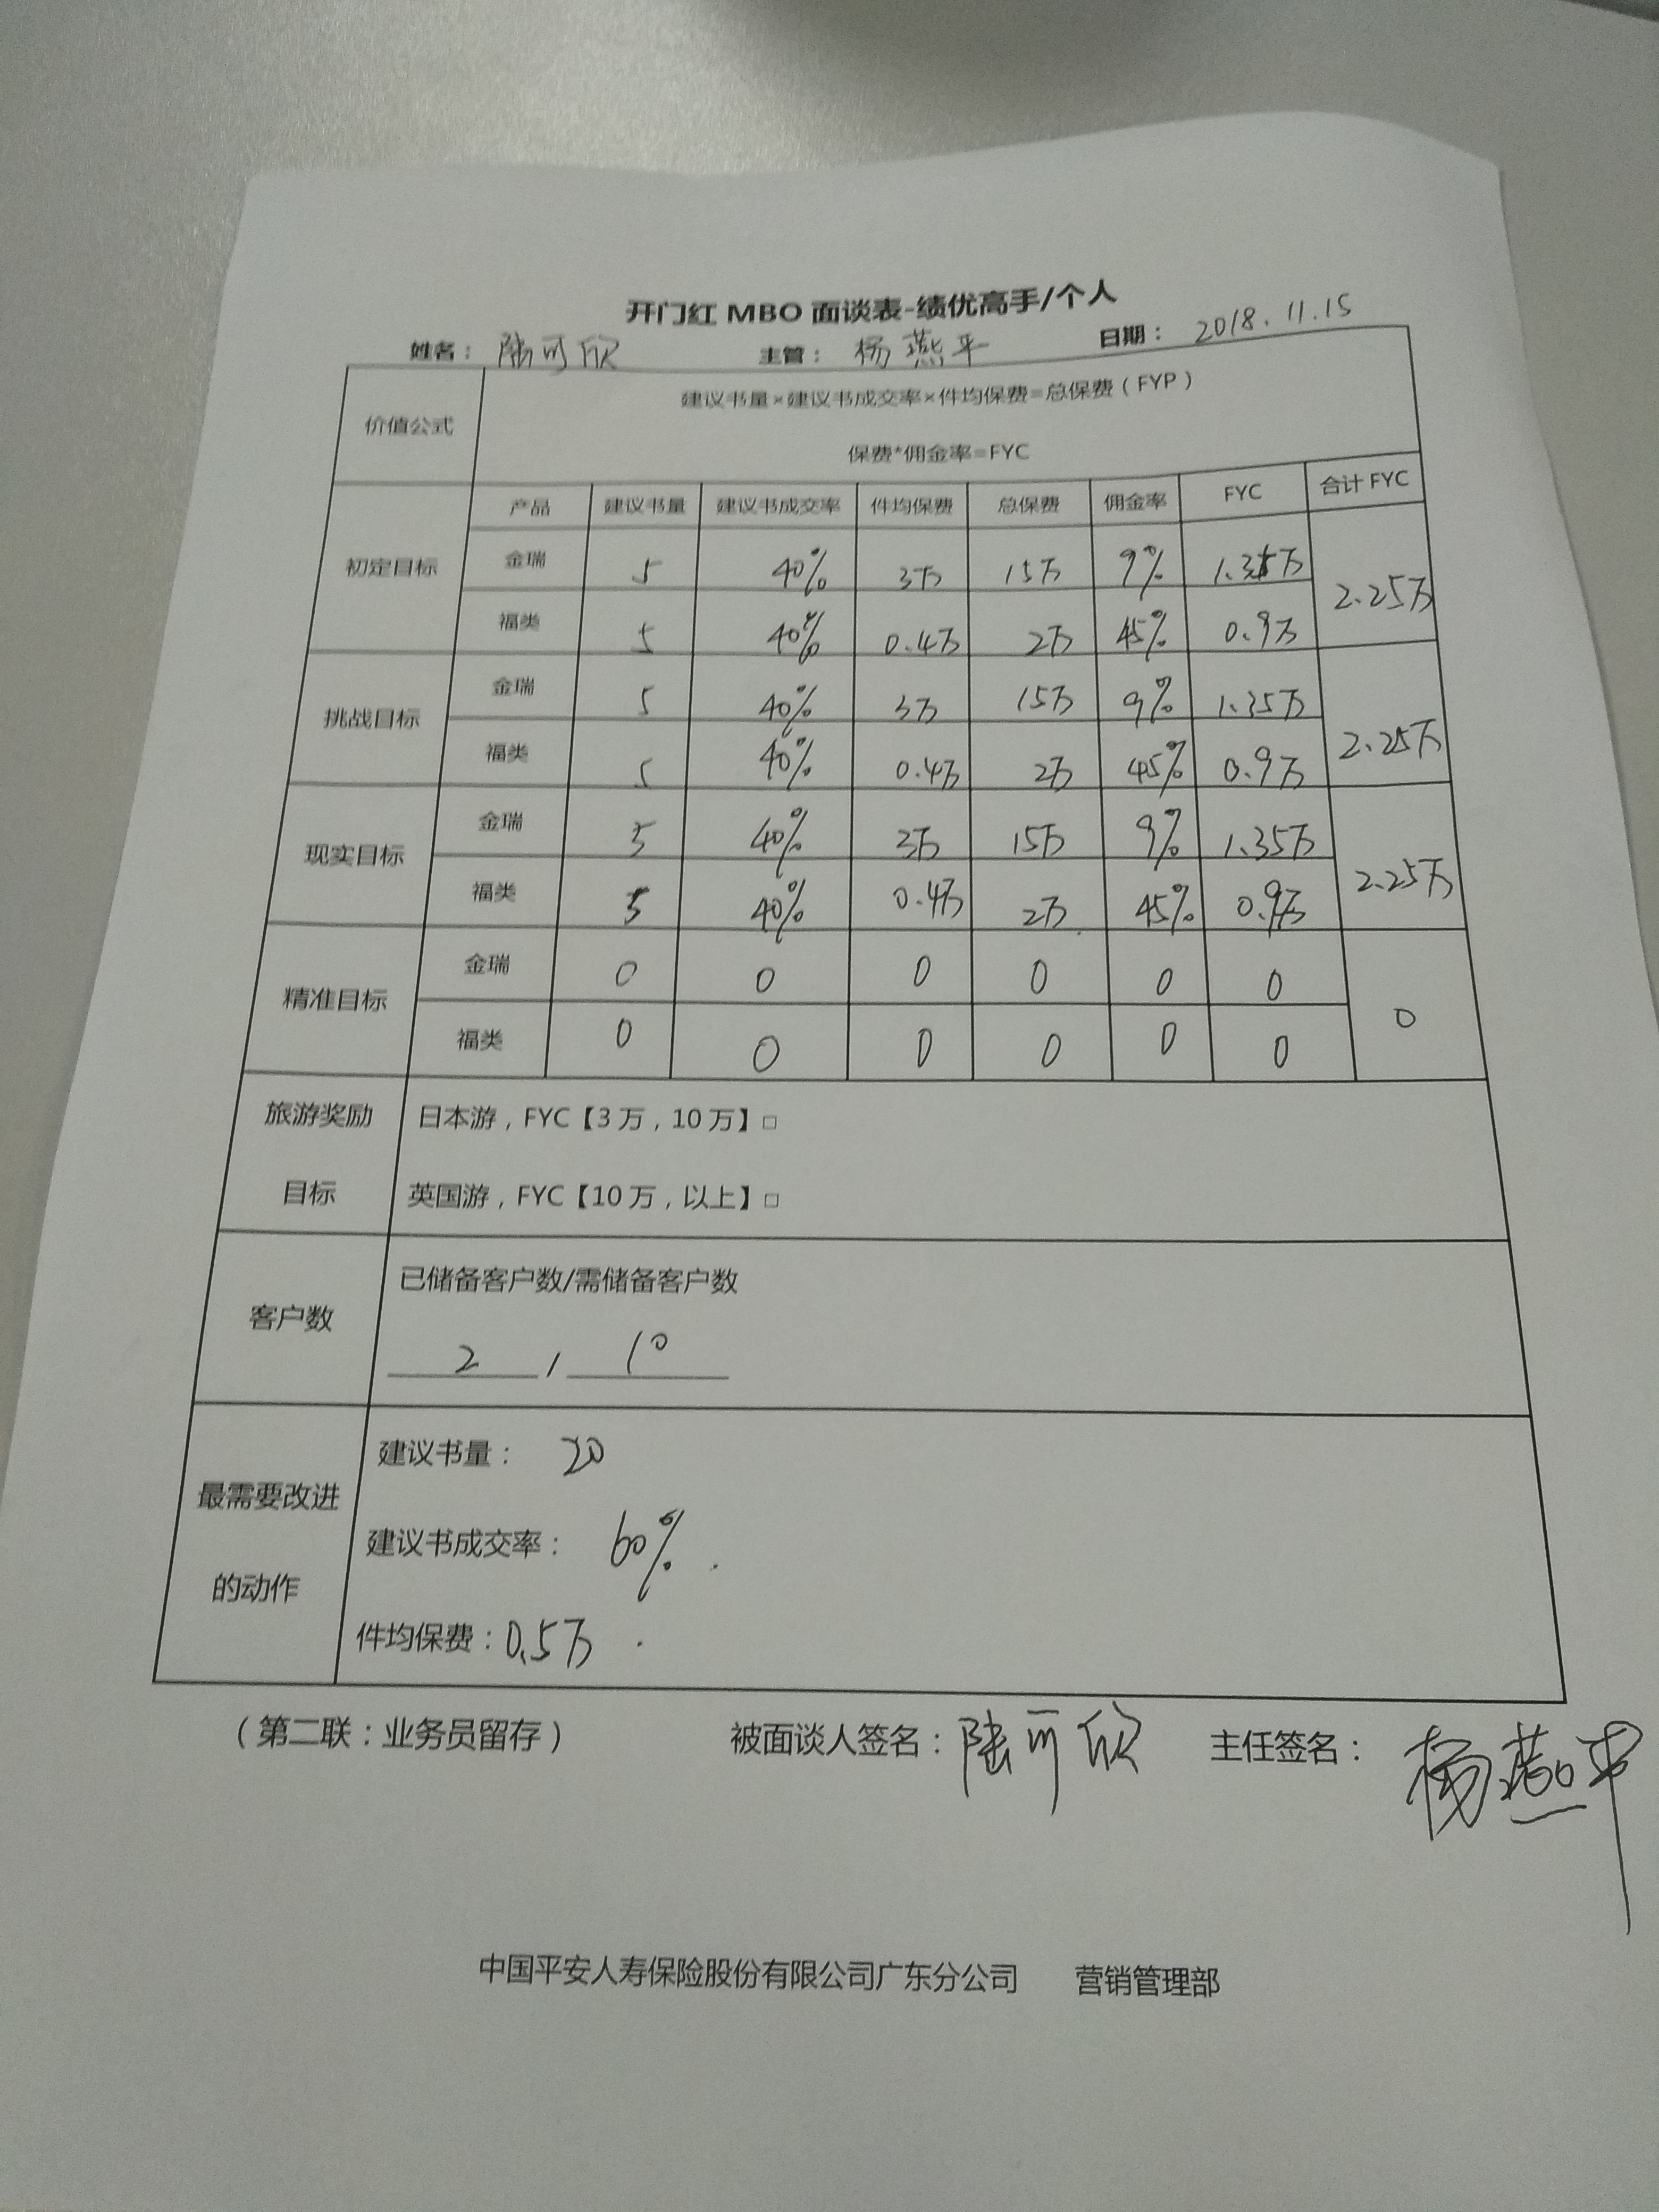 开门红 MBO 面谈表-绩优高手/个人
姓名： 陆可欣 主管： 杨燕平 日期： 2018.11.15
价值公式 建议书量×建议书成交率×件均保费=总保费（FYP）
保费*佣金率=FYC
产品 建议书量 建议书成交率 件均保费 总保费 佣金率 FYC 合计 FYC
初定目标 金瑞 5 40% 3万 15万 9% 1.35万 2.25万
福类 5 40% 0.4万 2万 45% 0.9万
挑战目标 金瑞 5 40% 3万 15万 9% 1.35万 2.25万
福类 5 40% 0.4万 2万 45% 0.9万
现实目标 金瑞 5 40% 3万 15万 9% 1.35万 2.25万
福类 5 40% 0.4万 2万 45% 0.9万
精准目标 金瑞 0 0 0 0 0 0 0
福类 0 0 0 0 0 0
旅游奖励 日本游，FYC【3 万，10 万】□
目标 英国游，FYC【10 万，以上】□
客户数 已储备客户数/需储备客户数
2 / 10
最需要改进的动作 建议书量： 20
建议书成交率： 60%
件均保费：0.5万
（第二联：业务员留存） 被面谈人签名：陆可欣 主任签名： 杨燕平
中国平安人寿保险股份有限公司广东分公司 营销管理部